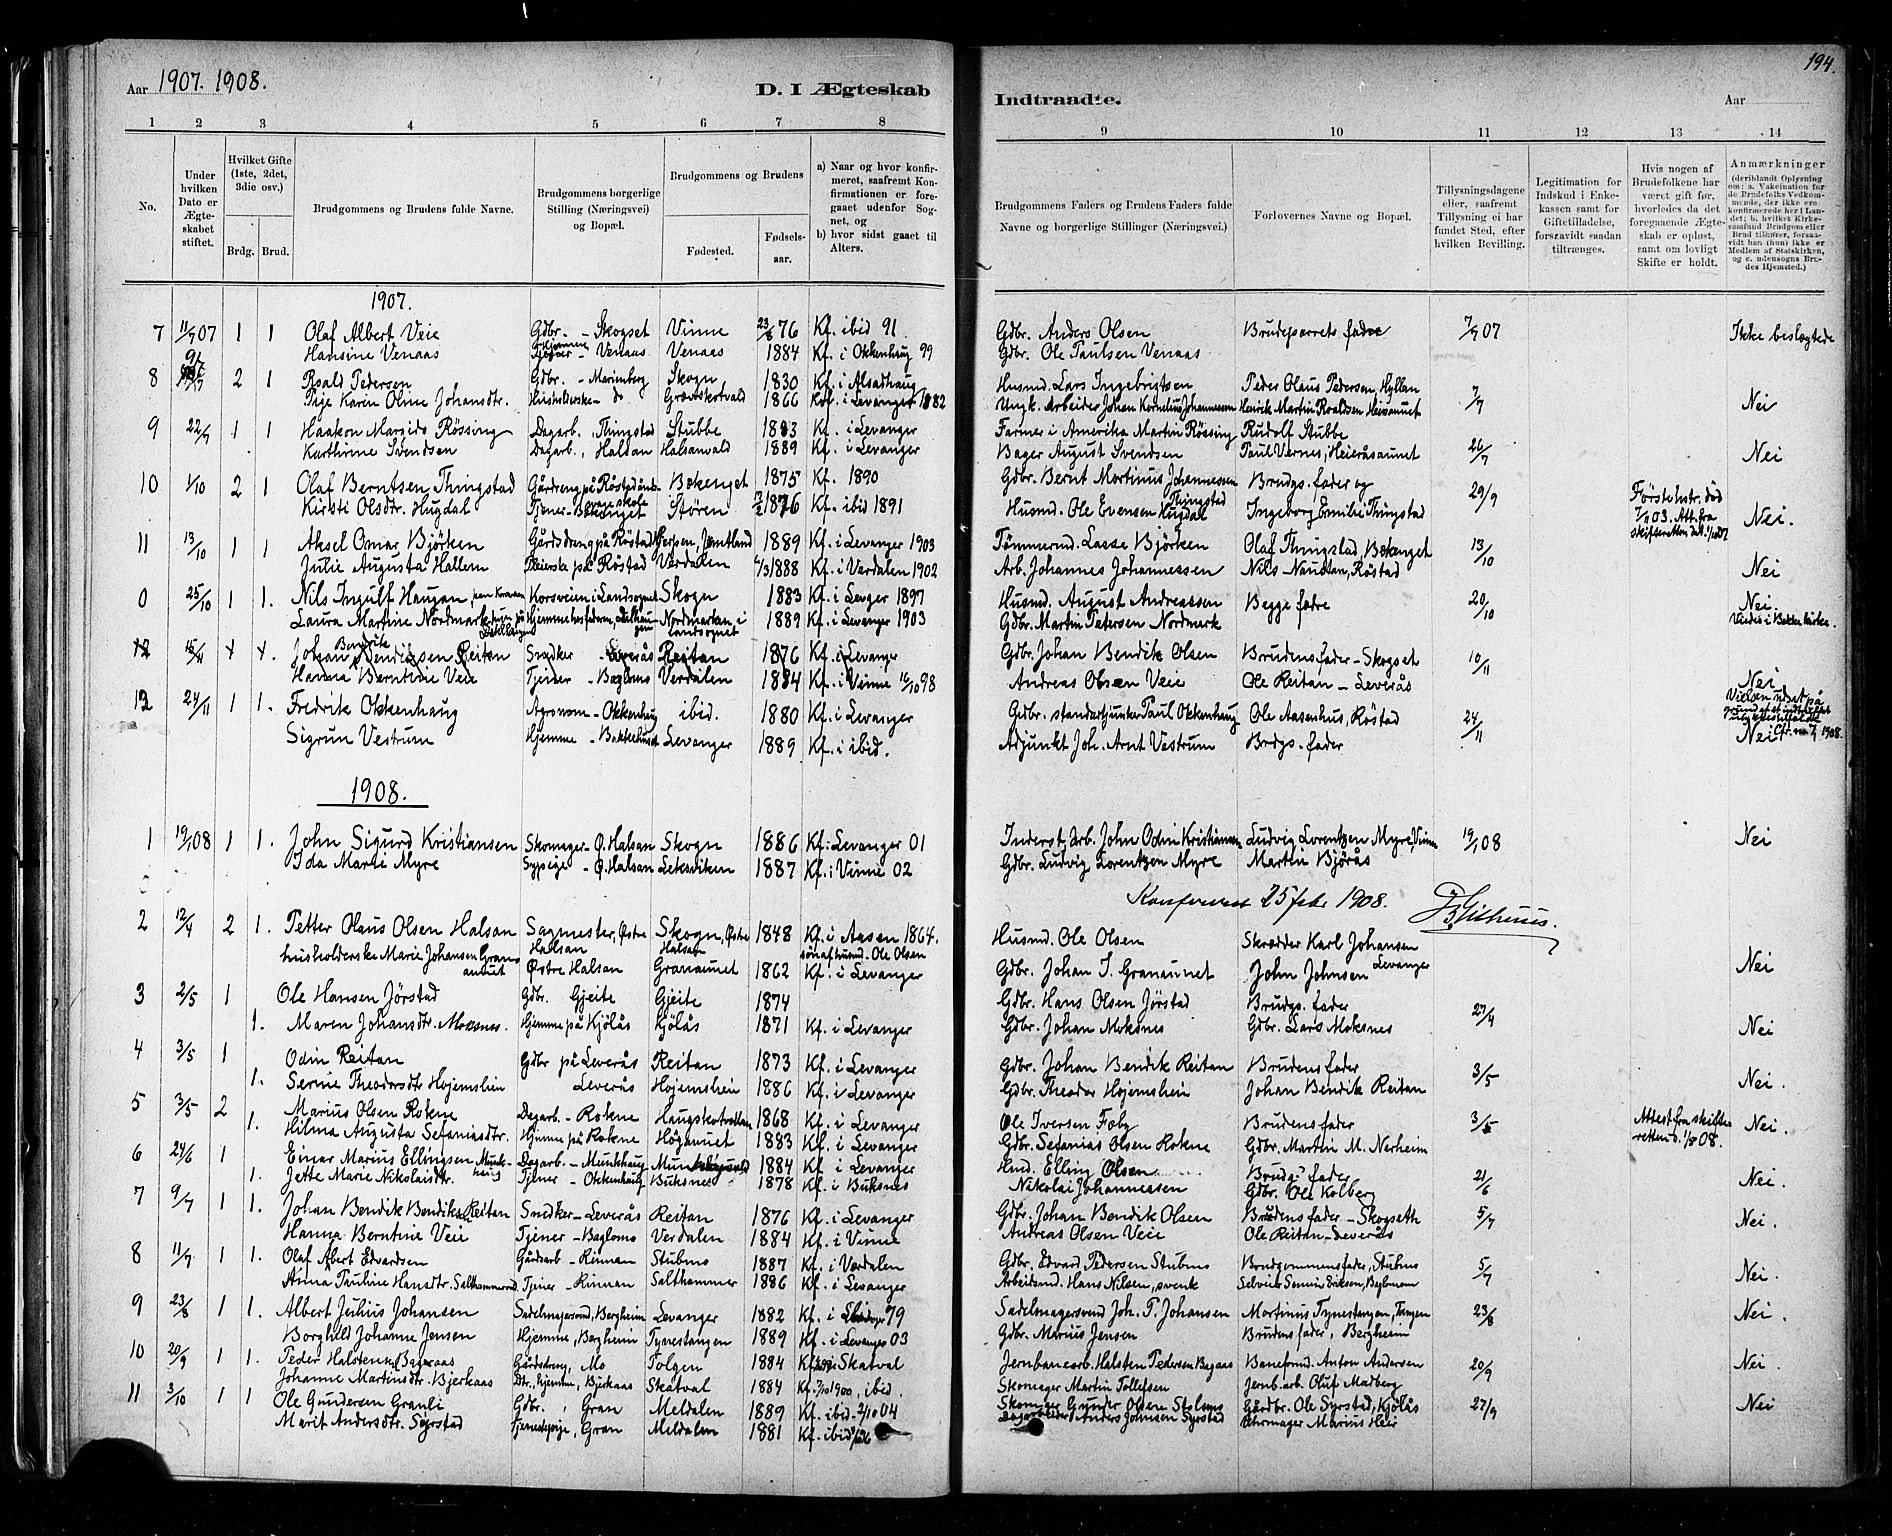 Aar 1907. 1908.
D. I Ægteskab
1 2 3 4 5 6 7 8
No.
Under hvilken Dato er Ægteskabet stiftet.
Hvilket Gifte (1ste, 2det, 3die osv.)
Brdg. Brud.
Brudgommens og Brudens fulde Navne.
Brudgommens borgerlige Stilling (Næringsvei) og Bopæl.
Brudgommens og Brudens
Fødested.
Fødselsaar.
a) Naar og hvor konfirmeret, saafremt Konfirmationen er foregaaet udenfor Sognet, og
b) hvor sidst gaaet til Alters.
1907.
7 11/7 07 1 1 Olaf Albert Veie Gdbr. - Skogset Vinne 23/8 76 Kf. ibid 91
Hansine Venaas Hjemme - Venaas Venaas 1884 Kf. i Okkenhaug 99
8 2 1 Roald Pedersen Gdbr. - Marienberg Skogn 1830 Kf. i Alsadhaug
Karin Olme Johansdtr. Husholderske - do 1866 Kof. i Levanger 1882
9 22/7 1 1 Haakon Margido Røssing Dagarb., Thingstad Stubbe Kf. i Levanger
Kathrine Svendsen Dagarb., Haldan Halsanvald 1889 Kf. i Levanger
10 1/10 2 1 Olaf Berntsen Thingstad Gårdreng på Røstad Bekenget 1875 Kf. 1890
Kirsti Olsdtr. Hugdal Tjener - Støren 1876 Kf. ibid 1891
11 13/10 1 1 Aksel Omar Bjørken Gårdsdreng på Røstad Jemtland 1889 Kf. i Levanger 1903
Julie Augusta Hallem Meierske på Røstad Værdalen 1888 Kf. i Værdalen 1902
0 25/10 1 1. Nils Ingulf Haugan Korsveien i Landsognet Skogn 1883 Kf. i Levger 1897
Laura Martine Nordmark Nordmarken i Landsognet 1889 Kf. i Levanger 1903
12 15/11 1 1. Johan Bendrik Bendiksen Reitan Snedker - Leverås Reitan 1876 Kf. i Levanger
Hanna Berntine Veie Tjener - Baglomo Verdalen 1884 Kf. i Vinne 16/10 98
12 24/11 1 1. Fredrik Okkenhaug Agronom - Okkenhaug ibid. 1880 Kf. i Levanger
Sigrun Vestrum Hjemme - Levanger 1889 Kf. i ibid.
1908.
1 19/1 08 1 1. John Sigurd Kristiansen Skomager - Ø. Halsan Skogn 1886 Kf. i Levanger 01
Ida Marie Myre Sypige - Ø. Halsan Leksviken 1887 Kf. i Vinne 02
2 12/4 2 1. Petter Olaus Olsen Halsan Sagmester, Østre Halsan Skogn, Østre Halsan 1848 Kf. i Aasen 1864.
søn af husmd. Ole Olsen
husholderske Marie Johansen Granaunet Østre Halsan Granaunet 1862 Kf. i Levanger
3 2/5 1 Ole Hansen Jørstad Gdbr. Gjeite Gjeite 1874
1. Maren Johansdtr. Moksnes. Hjemme på Kjølås Kjølås 1871 Kf. i Levanger
4 3/5 1 Odin Reitan Gdbr på Leverås Reitan 1873 Kf. i Levanger
1. Serine Theodorsdtr Hojemshein Leverås Hojemshein 1886 Kf. i Levanger
5 3/5 2 Marius Olsen Rokne Dagarb - Rokne 1868 Kf. i Levanger
1. Hilma Augusta Sefaniasdtr. Hjemme på Rokne Høgaunet 1883 Kf. i Levanger
6 24/6 1 Einar Marius Ellingsen Munkhaug Dagarb. - Munkhaug 1884 Kf. i Levanger
1. Jette Marie Nikolaisdtr. Tjener - Okkenhaug Buksnes 1878 Kf. i Buksnes
7 9/7 1 1. Johan Bendik Bendiksen Reitan Snedker - Leverås Reitan 1876 Kf. i Levanger
Hanna Berntine Veie Tjener - Baglomo Verdalen 1884 Kf. i Vinne
8 11/7 1 1. Olaf Albert Edvardsen Gårdsarb - Rinnan Stubmo 1887 Kf. i Værdalen
Anna Pauline Hansdtr. Salthammer Tjener - Rinnan Salthammer 1886 Kf. i Levanger
9 23/8 1 1. Albert Julius Johansen Sadelmagersvend, Bergheim Levanger 1882 Kf. i
Borghild Johanne Jensen Hjemme, Bergheim Tynestangen 1889 Kf. i Levanger 03
10 20/9 1 1. Peder Halstensen Bagaas Gårdsdreng, Mo Tolgen 1884 Kf. Skatval
Johanne Martinsdtr. Bjerkaas Dtr., hjemme, Bjerkaas Skatval 1884 Kf. 7/10 1900, ibid.
11 3/10 1 1 Ole Gundersen Granli Gdbr., Gran Meldalen 1889 Kf. ibid. 2/10 04
Marit Andersdtr. Syrstad Tjenestepige, Gran Meldalen 1881 Kf. ibid
194.
Indtraadte.
Aar
9 10 11 12 13 14
Brudgommens Faders og Brudens Faders fulde Navne og borgerlige Stillinger (Næringsvei.)
Forlovernes Navne og Bopæl.
Tillysningsdagene eller, saafremt Tillysning ei har fundet Sted, efter hvilken Bevilling.
Legitimation for Indskud i Enkekassen samt for Giftetilladelse, forsaavidt saadan tiltrænges.
Hvis nogen af Brudefolkene har været gift før, hvorledes da det foregaaende Ægteskab er opløst, samt om lovligt Skifte er holdt.
Anmærkninger (deriblandt Oplysning om: a. Vakcination for de Brudefolks Vedkommende, der ikke ere konfirmerede her i Landet; b. hvilket Kirkesamfund Brudgom eller Brud tilhører, forsaavidt han (hun) ikke er Medlem af Statskirken, og c. udensogns Brudes Hjemsted.)
Gdbr. Anders Olsen Brudeparrets fædre 7/7 07 Ikke beslægtede
Gdbr. Ole Paulsen Venaas
Husmd. Lars Ingebrigtsen Peder Olaus Pedersen, Hyllan 7/7 Nei
Ungk. Arbeider Johan Kornelius Johannessen Henrik Martin Roaldsen
Farmer i Amerika Martin Røssing Rudolf Stubbe 26/7 Nei
Bager August Svendsen Paul Vernes, Heieråsaunet
Gdbr. Bernt Martinus Johannessen Thingstad Brudgs. fader og 29/9 Nei.
Husmd. Ole Evensen Hugdal Ingeborg Emilie Thingstad
Tømmermd. Lasse Bjørken Olaf Thingstad, Bekenget 13/10 Nei
Arb. Johannes Johannessen Nils Naustan, Røstad
Husmd. August Andreassen Begge fædre 20/10 Nei.
Gdbr. Martin Petersen Nordmark Viedes i Bakke kirke.
Gdbr. Johan Bendik Olsen Brudens fader - Skogset 10/11 Nei
Andreas Olsen Veie Ole Reitan - Leverås
Gdbr. standartjunker Paul Okkenhaug Ole Aasenhus, Røstad 24/11 Nei
Cfr. no 7, 1908.
Adjunkt Joh. Arnt Vestrum Brdgs. fader
Inderst, Arb. John Odin Kristiansen Ludvig Lorentzen Myre, Vinne 19/1 08 Nei
Gdbr. Ludvig Lorentzen Myre Martin Bjørås
Konfereret 25 febr 1908.
Husmd. Ole Olsen Skrædder Karl Johansen Levanger Nei
Gdbr. Johan I. Granaunet John Johnsen
Gdbr. Hans Olsen Jørstad Brudgs. fader 27/4 Nei
Gdbr. Johan Moksnes Gdbr. Lars Moksnes
Gdbr. Johan Bendik Reitan Brudens fader 3/5 Nei.
Gdbr. Theodor Hojemshein Johan Bendik Reitan
Ole Iversen Foby Brudens fader 3/5 Attest fra skifteretten d. 1/5 08. Nei.
Gdbr. Sefanias Olsen Rokne Gdbr. Martin M. Nerheim
Hmd. Elling Olsen Brudgs fader 21/6 Nei.
Nikolai Johannessen Gdbr. Ole Kolberg
Gdbr. Johan Bendik Olsen Brudens fader - Skogseth 5/7 Nei.
Andreas Olsen Veie Ole Reitan - Leverås
Gdbr. Edvard Pedersen Stubmo Brudgommens fader, Stubmo 5/7 Nei.
Arbeidsmd. Hans Nilsen, svensk Eriksen, Baglomoen
Sadelmagersvend Joh. P. Johansen Martinus Tynestangen, Tangen 23/8 Nei.
Gdbr. Marius Jensen Brudens fader, Bergheim
Jernbanearb. Halsten Pedersen Bagaas Baneformd. Anton Andersen 20/9 Nei.
Skomager Martin Tollefsen Jernb. arb. Oluf Madberg
Skomager Gunder Olsen Gårdbr. Ole Syrstad, Kjölås 27/9 Nei
Dagarbeider Anders Johnsen Syrstad Uhrmager Marius Heir